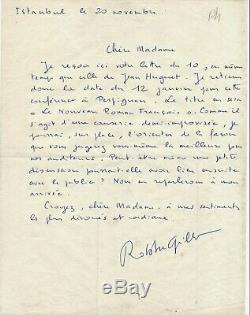 Istanbul le 20 novembre
Chère Madame
Je reçois ici votre lettre du 10, en même
temps que celle de Jean Huguet. Je retiens
donc la date du 12 janvier pour cette
conférence à Perpignan. Le titre en sera
« Le Nouveau Roman Français ». Comme il
s'agit d'une causerie demi-improvisée, je
pourrai, sur place, l'orienter de la façon
que vous jugerez vous-même la meilleure pour
vos auditeurs. Peut-être même une petite
discussion pourrait-elle avoir lieu ensuite
avec le public ? Nous en reparlerons à mon
arrivée.
Croyez, chère Madame, à mes sentiments
les plus dévoués et cordiaux